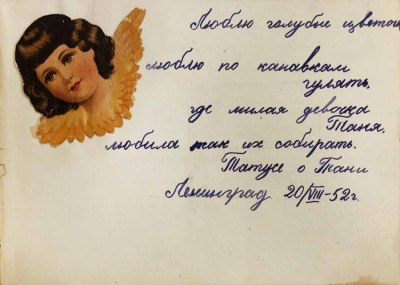 Люблю голубые цветочки
люблю по канавкам
гулять.
где милая девочка
Таня.
любила так их собирать.
Татусе о Тани
Ленинград 20/VIII-52г.